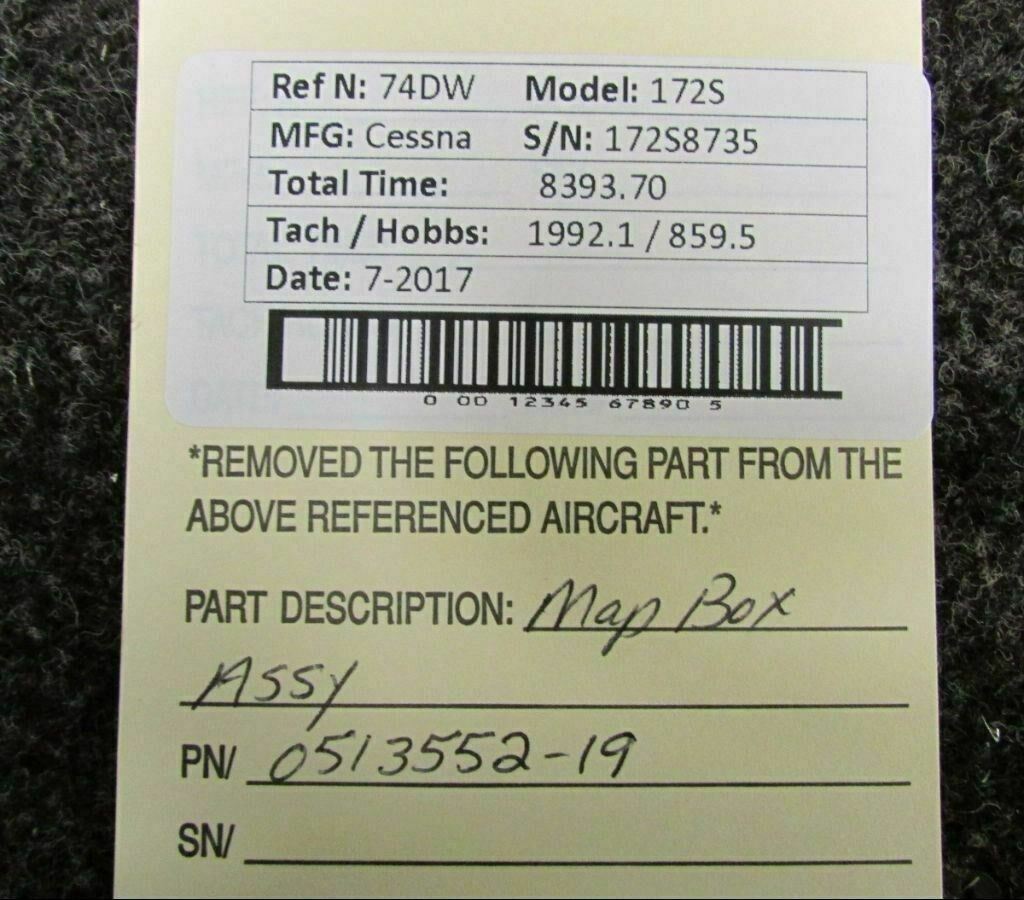 Ref N: 74DW Model: 172S
MFG: Cessna S/N: 172S8735
Total Time: 8393.70
Tach / Hobbs: 1992.1 / 859.5
Date: 7-2017
0 00 12345 67890 5
*REMOVED THE FOLLOWING PART FROM THE
ABOVE REFERENCED AIRCRAFT.*
PART DESCRIPTION: Map Box
Assy
PN/ 0513552-19
SN/